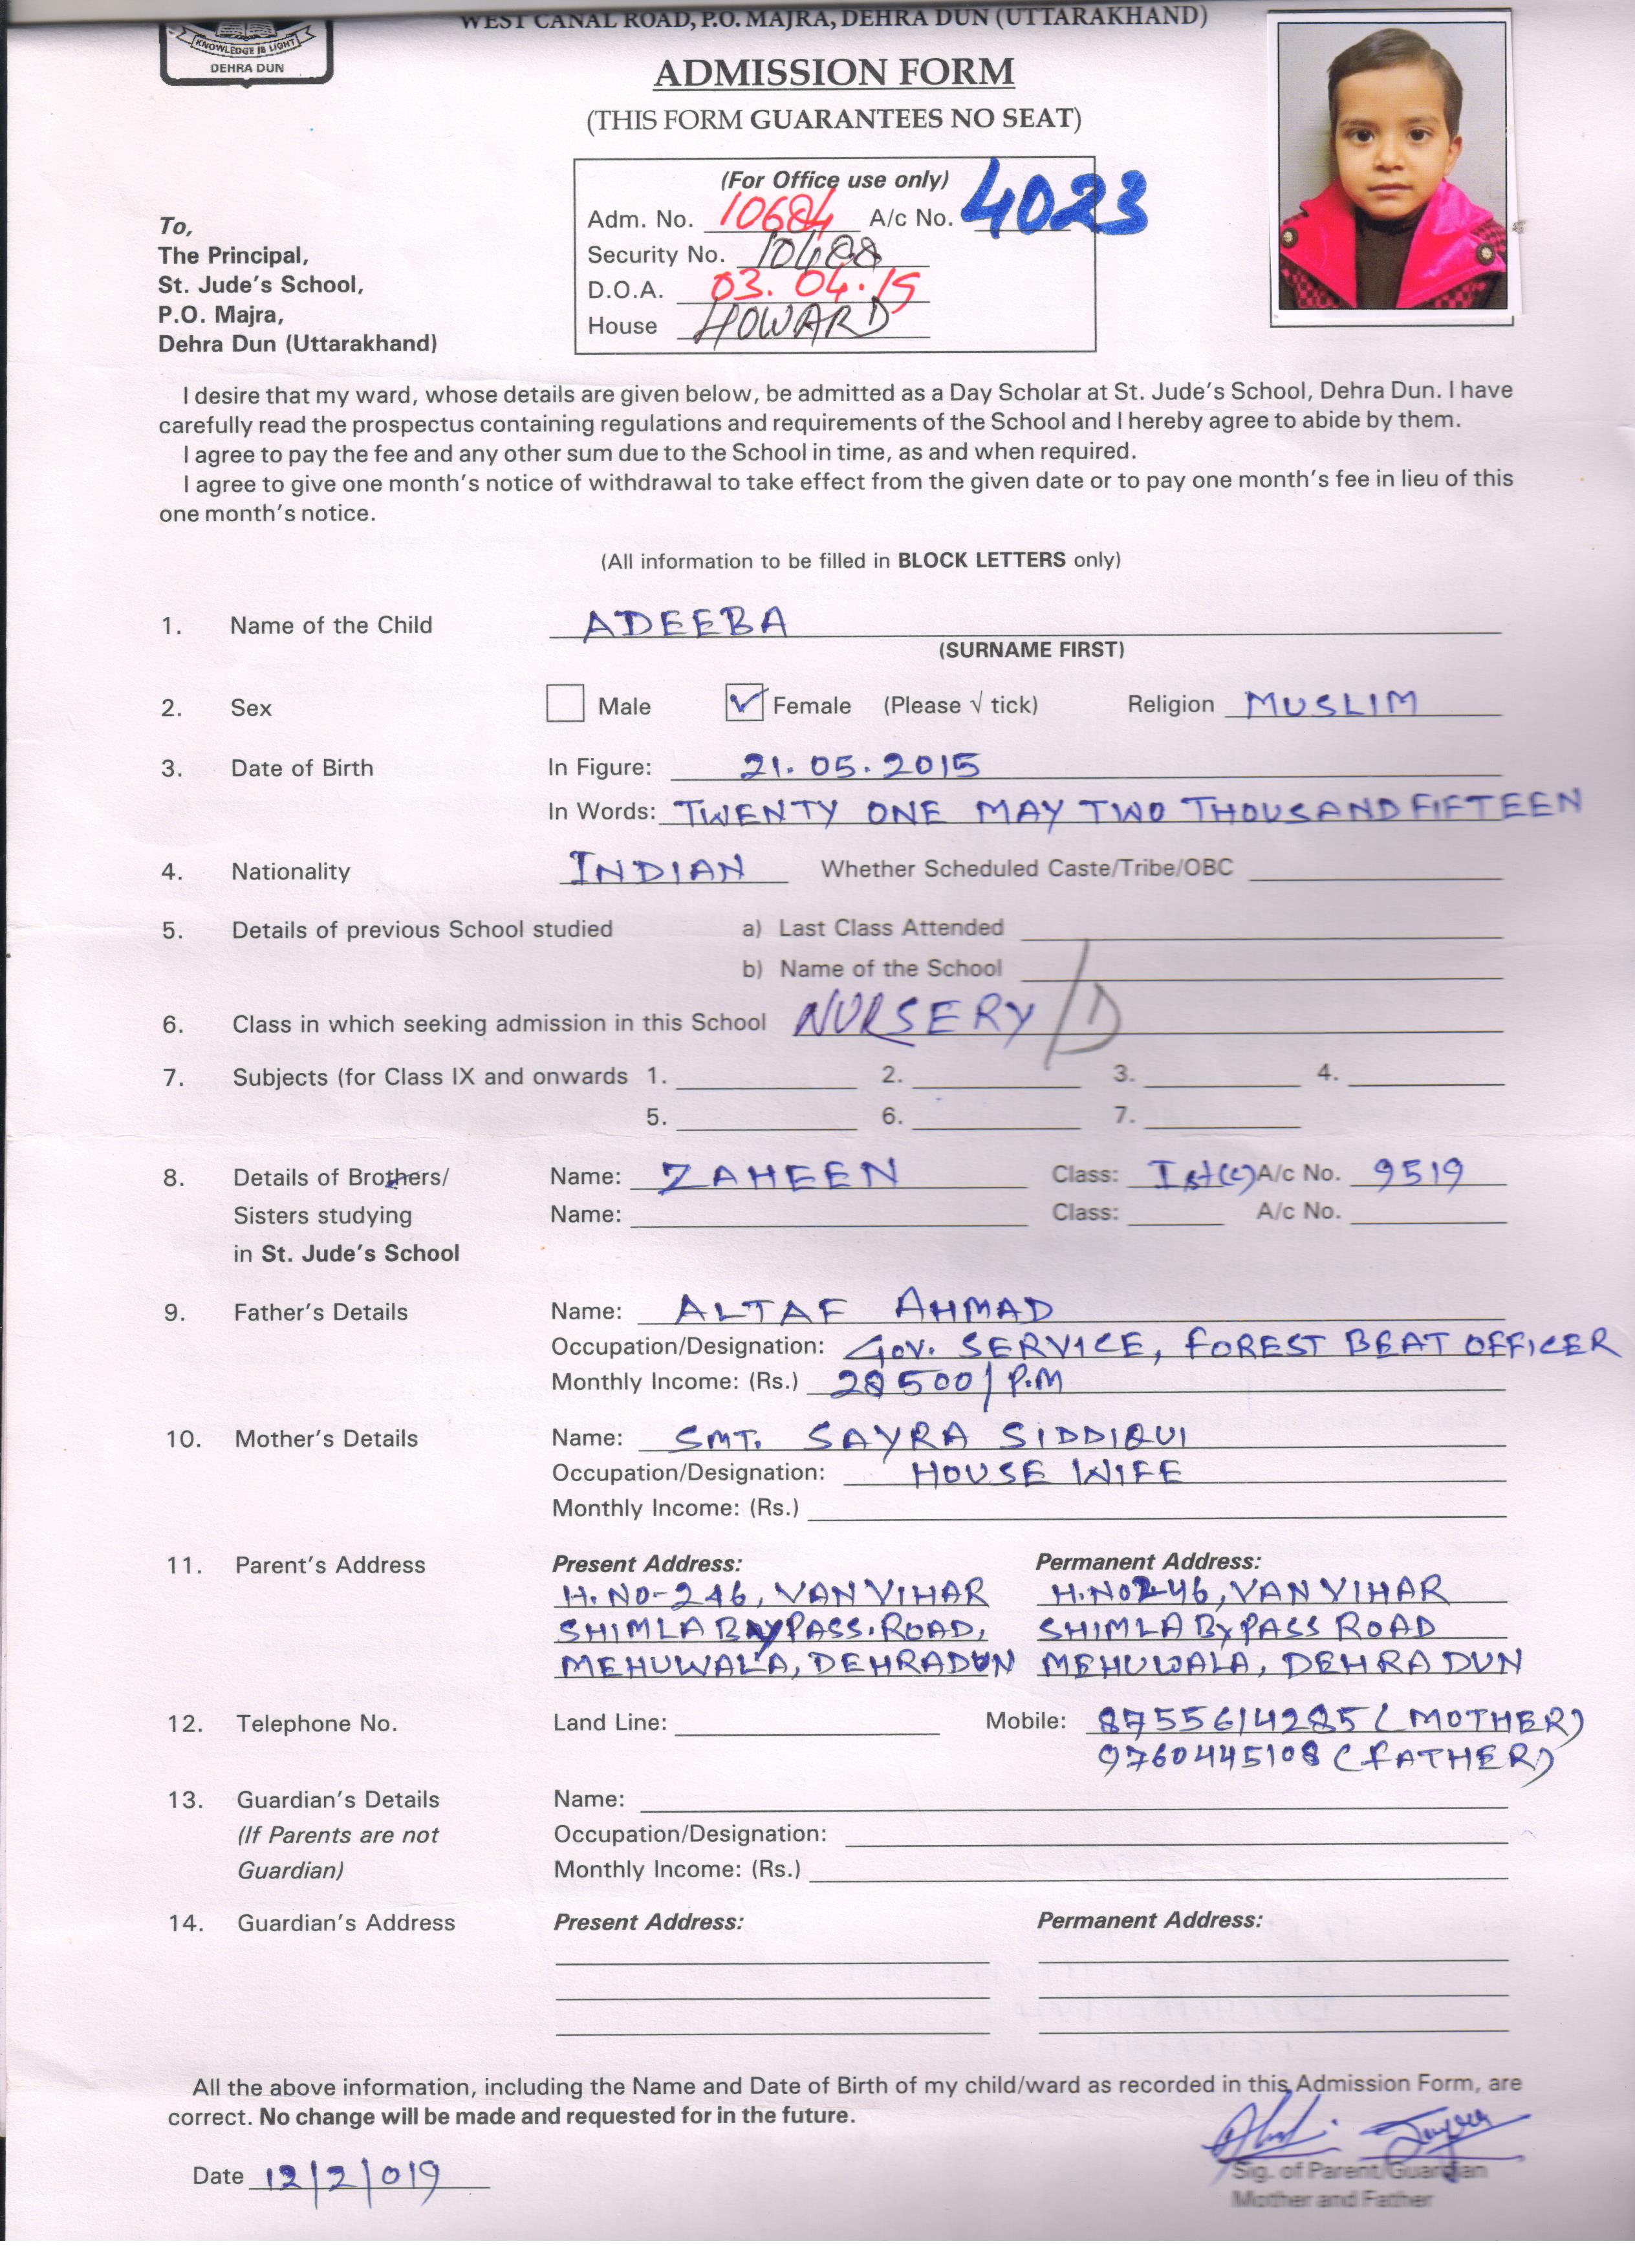 WEST CANAL ROAD, P.O. MAJRA, DEHRA DUN (UTTARAKHAND)
KNOWLEDGE IS LIGHT
DEHRA DUN
ADMISSION FORM
(THIS FORM GUARANTEES NO SEAT)
(For Office use only)
Adm. No. 10684 A/c No. 4023
Security No. 10488
D.O.A. 03.04.19
House HOWARD
To,
The Principal,
St. Jude's School,
P.O. Majra,
Dehra Dun (Uttarakhand)
I desire that my ward, whose details are given below, be admitted as a Day Scholar at St. Jude's School, Dehra Dun. I have
carefully read the prospectus containing regulations and requirements of the School and I hereby agree to abide by them.
I agree to pay the fee and any other sum due to the School in time, as and when required.
I agree to give one month's notice of withdrawal to take effect from the given date or to pay one month's fee in lieu of this
one month's notice.
(All information to be filled in BLOCK LETTERS only)
1. Name of the Child ADEEBA
(SURNAME FIRST)
2. Sex Male ✓ Female (Please √ tick) Religion MUSLIM
3. Date of Birth In Figure: 21.05.2015
In Words: TWENTY ONE MAY TWO THOUSAND FIFTEEN
4. Nationality INDIAN Whether Scheduled Caste/Tribe/OBC
5. Details of previous School studied a) Last Class Attended
b) Name of the School
6. Class in which seeking admission in this School NURSERY/D
7. Subjects (for Class IX and onwards 1. 2. 3. 4.
5. 6. 7.
8. Details of Brothers/ Name: ZAHEEN Class: Ist(c) A/c No. 9519
Sisters studying Name: Class: A/c No.
in St. Jude's School
9. Father's Details Name: ALTAF AHMAD
Occupation/Designation: Gov. SERVICE, FOREST BEAT OFFICER
Monthly Income: (Rs.) 28500/ P.M
10. Mother's Details Name: SMT. SAYRA SIDDIQUI
Occupation/Designation: HOUSE WIFE
Monthly Income: (Rs.)
11. Parent's Address Present Address: Permanent Address:
H.NO-246, VAN VIHAR H.NO246, VAN VIHAR
SHIMLA BYPASS.ROAD, SHIMLA BYPASS ROAD
MEHUWALA, DEHRADUN MEHUWALA, DEHRADUN
12. Telephone No. Land Line: Mobile: 8755614285 (MOTHER)
9760445108 (FATHER)
13. Guardian's Details Name:
(If Parents are not Occupation/Designation:
Guardian) Monthly Income: (Rs.)
14. Guardian's Address Present Address: Permanent Address:
All the above information, including the Name and Date of Birth of my child/ward as recorded in this Admission Form, are
correct. No change will be made and requested for in the future.
Date 12/2/019
Sig. of Parent/Guardian
Mother and Father